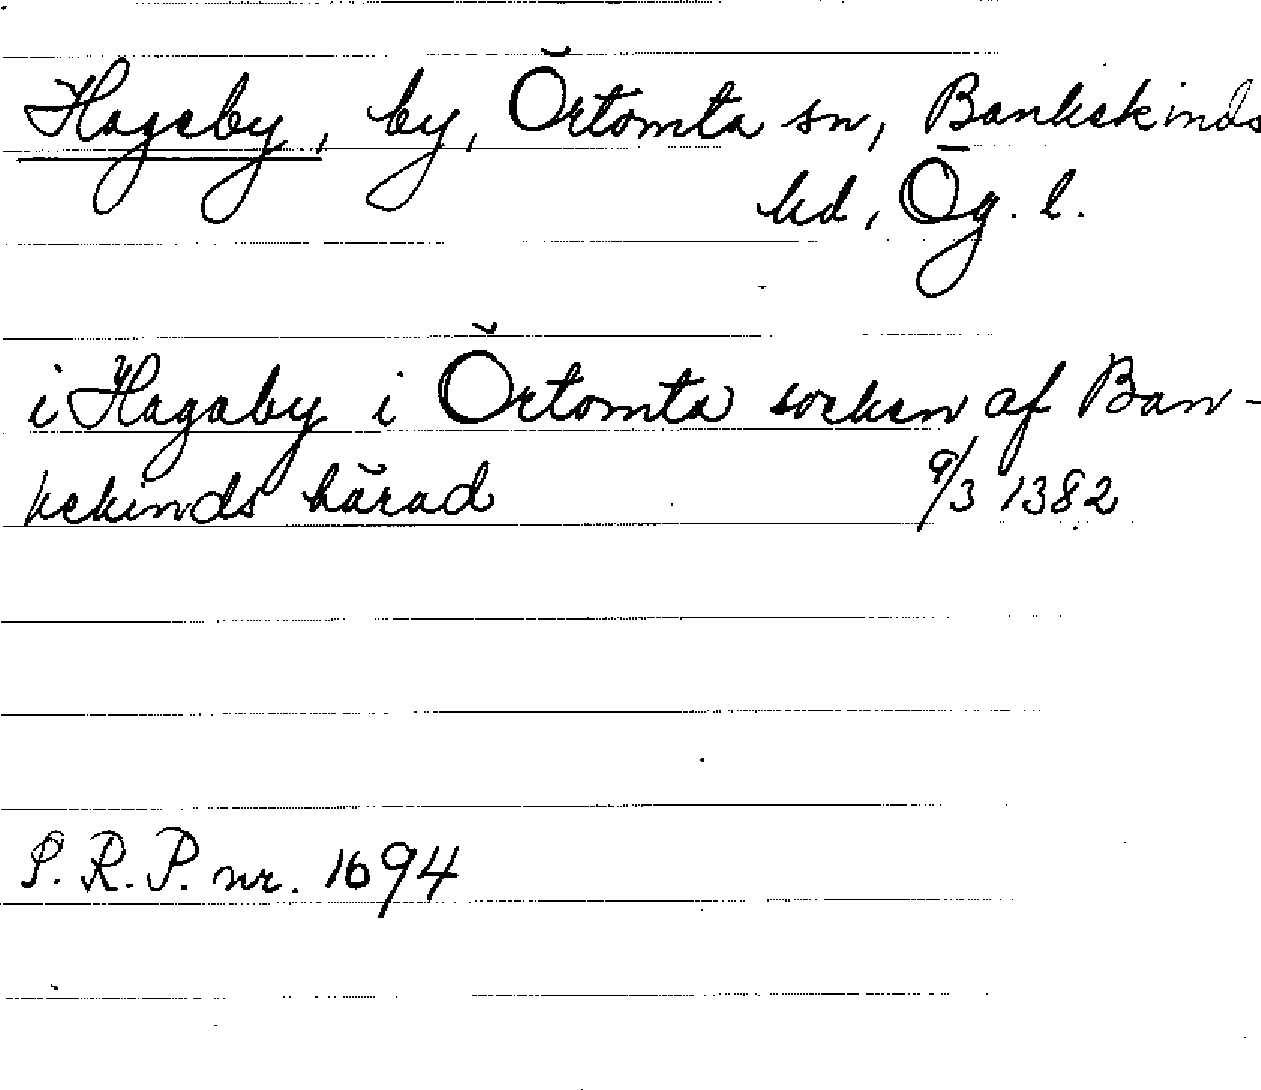 Hageby, by, Örtomta sn, Bankekinds
hd, Ög. l.
i Hagaby i Örtomta socken af Ban-
kekinds härad 9/3 1382
S. R. P. nr. 1694